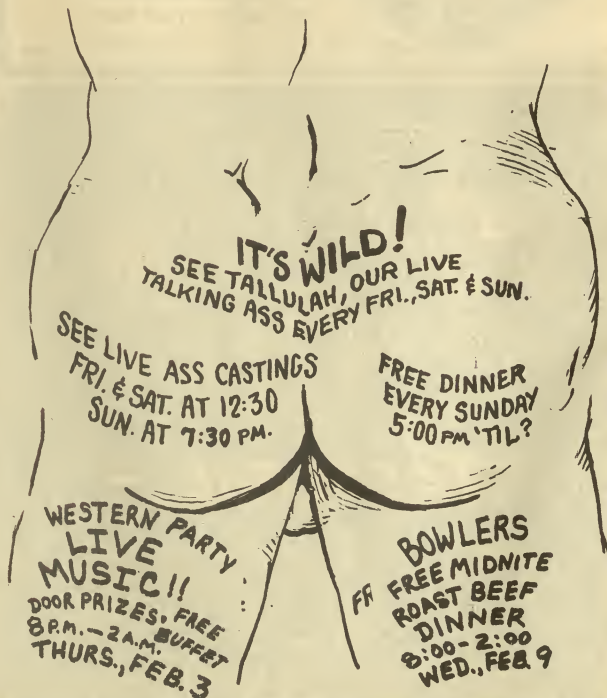 IT'S WILD!
SEE TALLULAH, OUR LIVE
TALKING ASS EVERY FRI., SAT. & SUN.
SEE LIVE ASS CASTINGS
FRI. & SAT. AT 12:30
SUN. AT 7:30 PM.
FREE DINNER
EVERY SUNDAY
5:00 PM 'TIL?
WESTERN PARTY
LIVE
MUSIC!!
DOOR PRIZES, FREE
BUFFET
8 P.M. - 2 A.M.
THURS., FEB. 3
BOWLERS
FR FREE MIDNITE
ROAST BEEF
DINNER
8:00 - 2:00
WED., FEB. 9